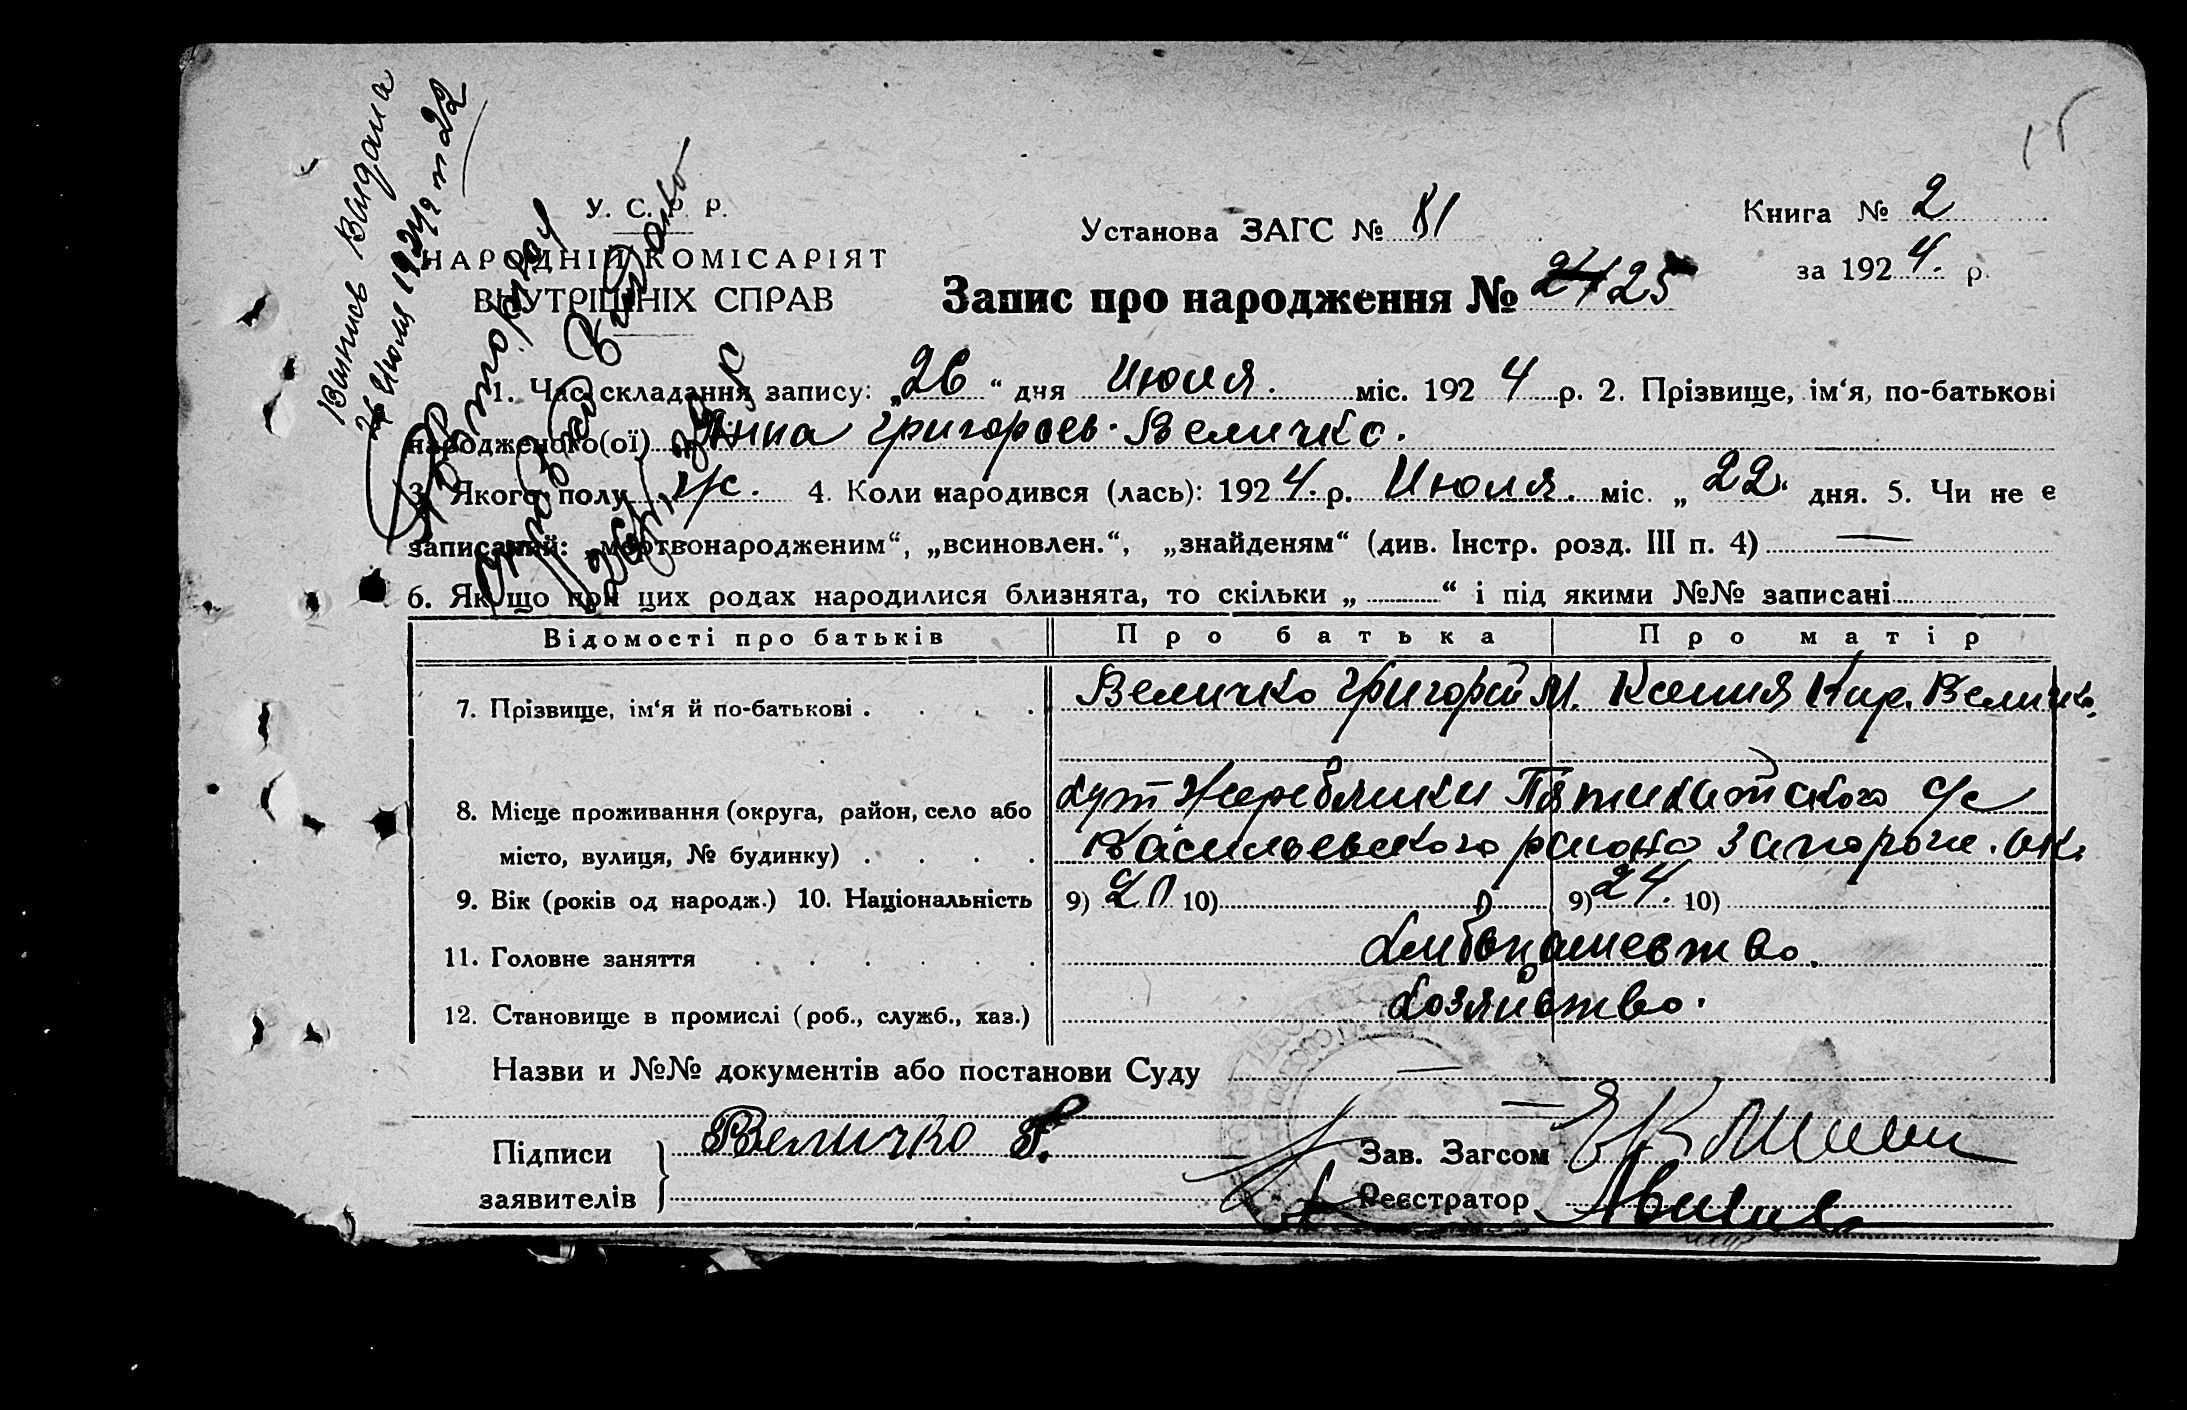 Выпись Выдана
26 Июля 1924 г. № 22
У. С. Р. Р.
НАРОДНІЙ КОМІСАРІЯТ
ВНУТРІШНІХ СПРАВ
Установа ЗАГС № 81
Книга № 2
за 1924. р.
Запис про народження № 24 25
1. Час складання запису: „26“ дня Июля. міс. 1924 р. 2. Прізвище, ім‘я, по-батькові
народженого(ої) Анна Григорьев. Величко.
3. Якого полу ж. 4. Коли народився (лась): 1924. р. Июля. міс. „22“ дня. 5. Чи не є
записаний: „мертвонародженим“, „всиновлен.“, „знайденям“ (див. Інстр. розд. III п. 4) —
6. Якщо при цих родах народилися близнята, то скільки „ “ і під якими №№ записані
Відомості про батьків Про батька Про матір
7. Прізвище, ім‘я й по-батькові Величко Григорій М. Ксения Кир. Величко.
8. Місце проживання (округа, район, село або хут Жеребянки Пятихатского с/с
місто, вулиця, № будинку) Васильевского района Запорож. окр.
9. Вік (років од народж.) 10. Національність 9) 20 10) 9) 24. 10)
11. Головне заняття хлибопашевтво.
12. Становище в промислі (роб., служб., хаз.) хозяйство.
Назви и №№ документів або постанови Суду —
Підписи Величко Г. Зав. Загсом
заявителів Реєстратор